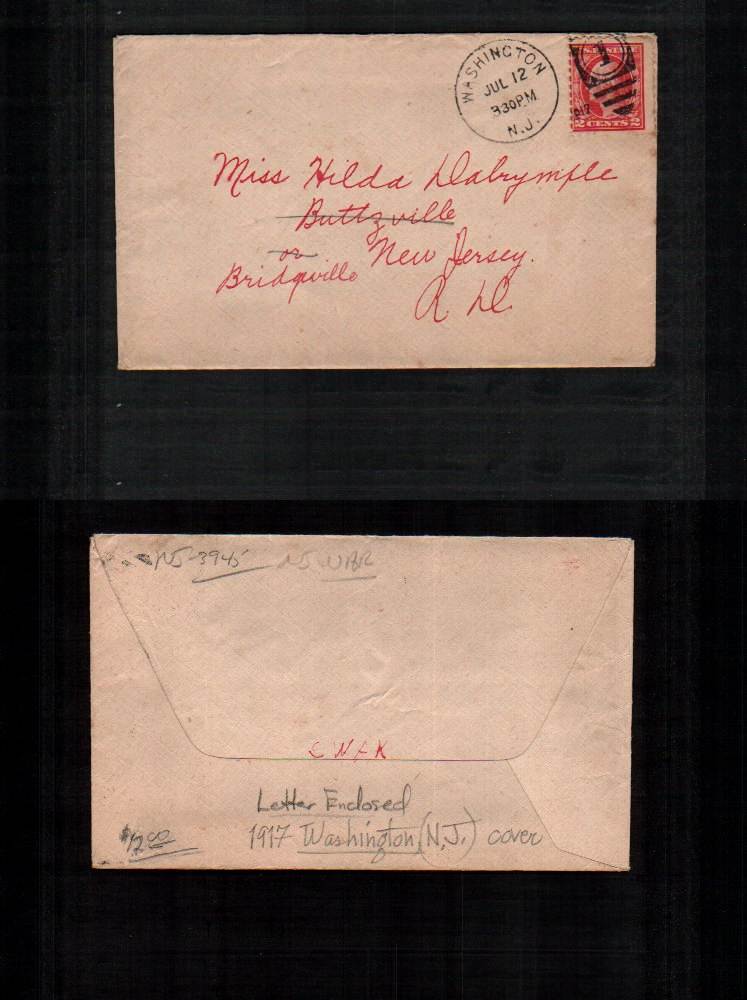 WASHINGTON
JUL 12
330PM
N.J.
1
U.S. POSTAGE
917
2 CENTS 2
Miss Hilda Dalrymple
Buttzville
or New Jersey.
Bridgville
R D.
NJ-3945 NJ WAR
SWAK
Letter Enclosed
1917 Washington (N.J.) cover
$12.00